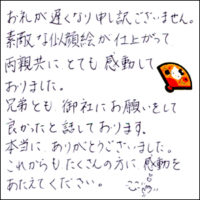 お礼が遅くなり申し訳ございません。
素敵な似顔絵が仕上がって
両親共にとても感動して
おりました。
兄弟とも御社にお願いをして
良かったと話しております。
本当に、ありがとうございました。
これからもたくさんの方に感動を
あたえてください。